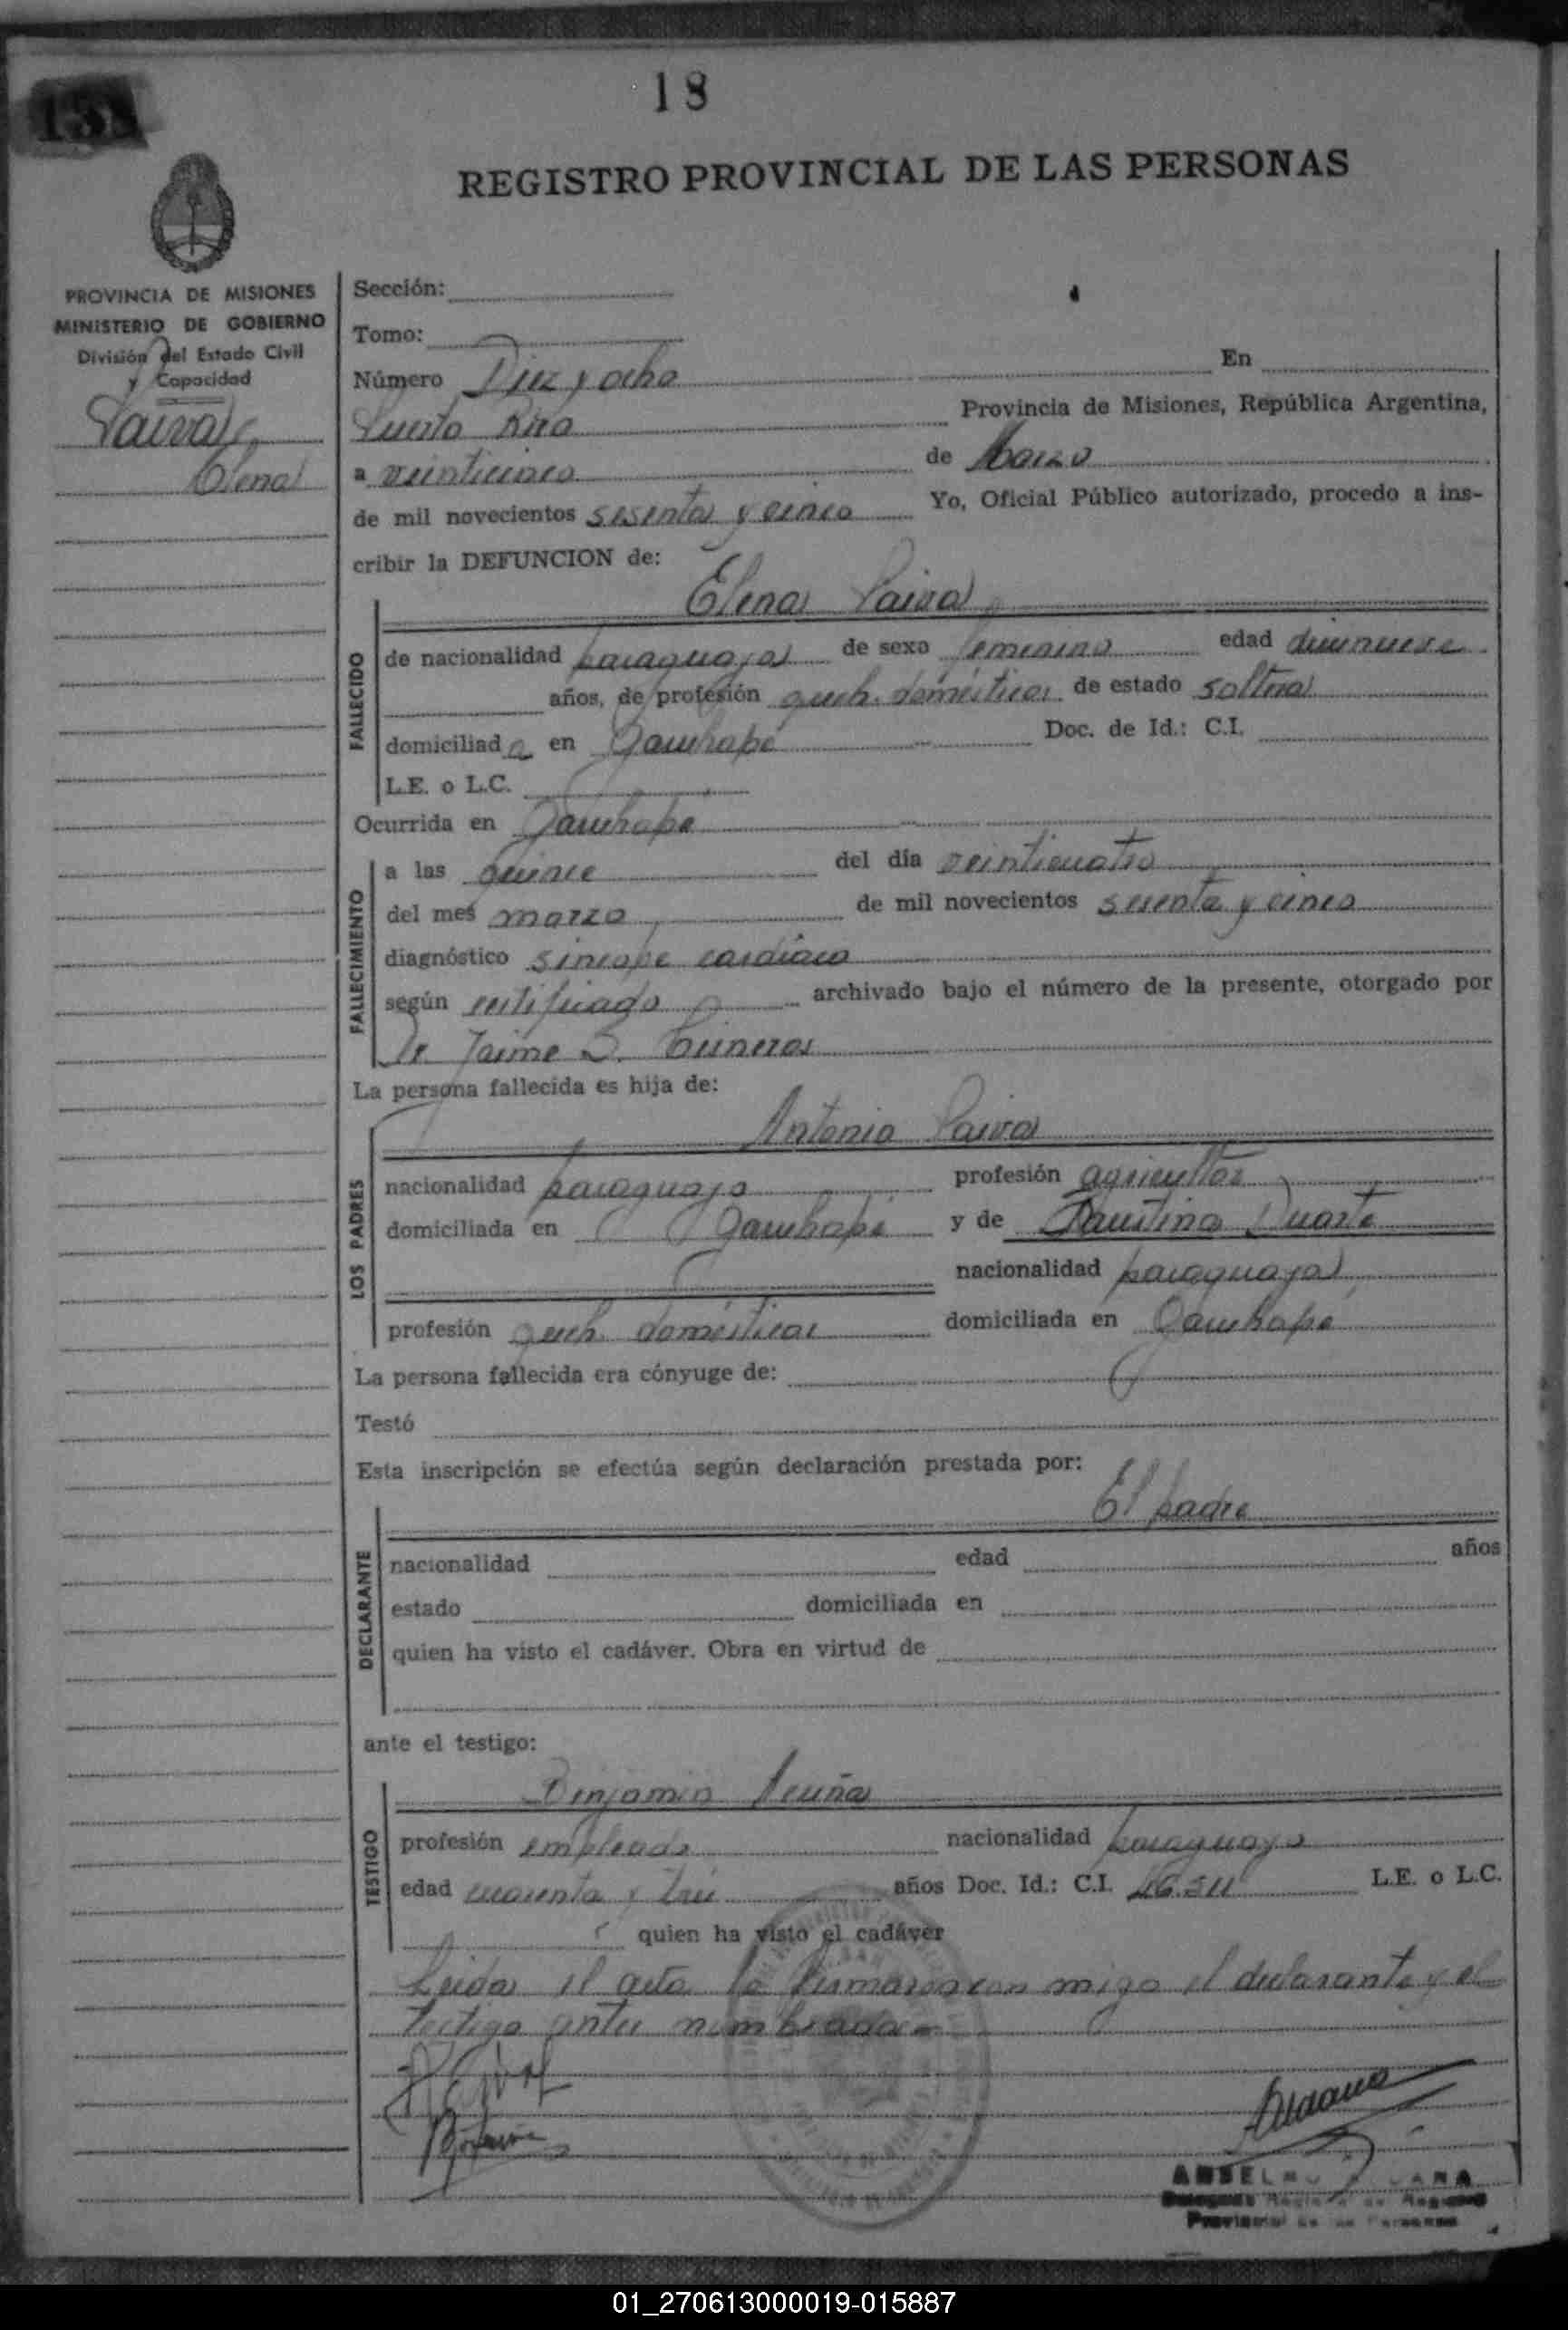 18
REGISTRO PROVINCIAL DE LAS PERSONAS
PROVINCIA DE MISIONES
MINISTERIO DE GOBIERNO
División del Estado Civil
y Capacidad
Paiva
Elena
Sección:
Tomo:
Número Diez y ocho En
Puerto Rico Provincia de Misiones, República Argentina,
a veinticinco de Marzo
de mil novecientos sesenta y cinco Yo, Oficial Público autorizado, procedo a ins-
cribir la DEFUNCION de:
Elena Paiva
FALLECIDO
de nacionalidad paraguaya de sexo femenino edad diecinueve
años, de profesión queh. domésticos de estado soltera
domiciliada en Garuhapé Doc. de Id.: C.I.
L.E. o L.C.
Ocurrida en Garuhapé
FALLECIMIENTO
a las quince del día veinticuatro
del mes marzo de mil novecientos sesenta y cinco
diagnóstico sincope cardíaco
según certificado archivado bajo el número de la presente, otorgado por
Dr. Jaime S. Cisneros
La persona fallecida es hija de:
Antonio Paiva
LOS PADRES
nacionalidad paraguayo profesión agricultor
domiciliada en Garuhapé y de Faustina Duarte
nacionalidad paraguaya
profesión queh. domésticos domiciliada en Garuhapé
La persona fallecida era cónyuge de:
Testó
Esta inscripción se efectúa según declaración prestada por:
El padre
DECLARANTE
nacionalidad edad años
estado domiciliada en
quien ha visto el cadáver. Obra en virtud de
ante el testigo:
Benjamin Acuña
TESTIGO
profesión empleado nacionalidad paraguayo
edad cuarenta y tres años Doc. Id.: C.I. L.E. o L.C.
quien ha visto el cadáver
Leida el acta la firmaron conmigo el declarante y el
testigo antes nombrado.-
ANSELMO
01_270613000019-015887